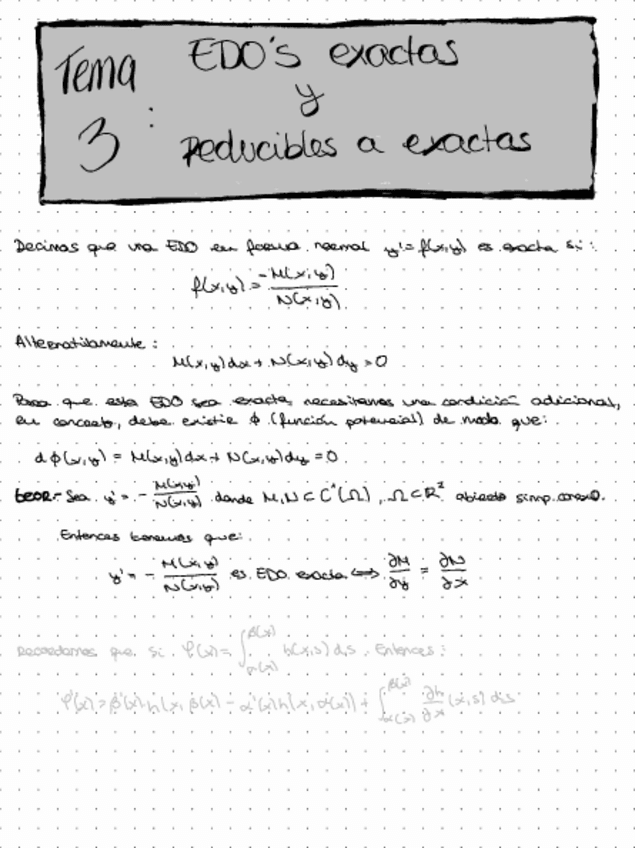 Tema 3:
EDO's exactas
y
reducibles a exactas
Decimos que una EDO en forma normal y' = f(x,y) es exacta si:
f(x,y) = -M(x,y) / N(x,y)
Alternativamente:
M(x,y)dx + N(x,y)dy = 0
Para que esta EDO sea exacta, necesitamos una condición adicional,
en concreto, debe existir ϕ (función potencial) de modo que:
dϕ(x,y) = M(x,y)dx + N(x,y)dy = 0.
teor.- Sea y' = - M(x,y) / N(x,y) donde M,N ⊂ C¹(Ω), Ω ⊂ ℝ² abierto simp. conexo.
Entonces tenemos que:
y' = - M(x,y) / N(x,y) es EDO exacta ⟺ ∂M/∂y = ∂N/∂x
Recordamos que si φ(x) = ∫_{α(x)}^{β(x)} h(x,s) ds. Entonces:
φ'(x) = β'(x) h(x, β(x)) - α'(x) h(x, α(x)) + ∫_{α(x)}^{β(x)} ∂h/∂x (x,s) ds